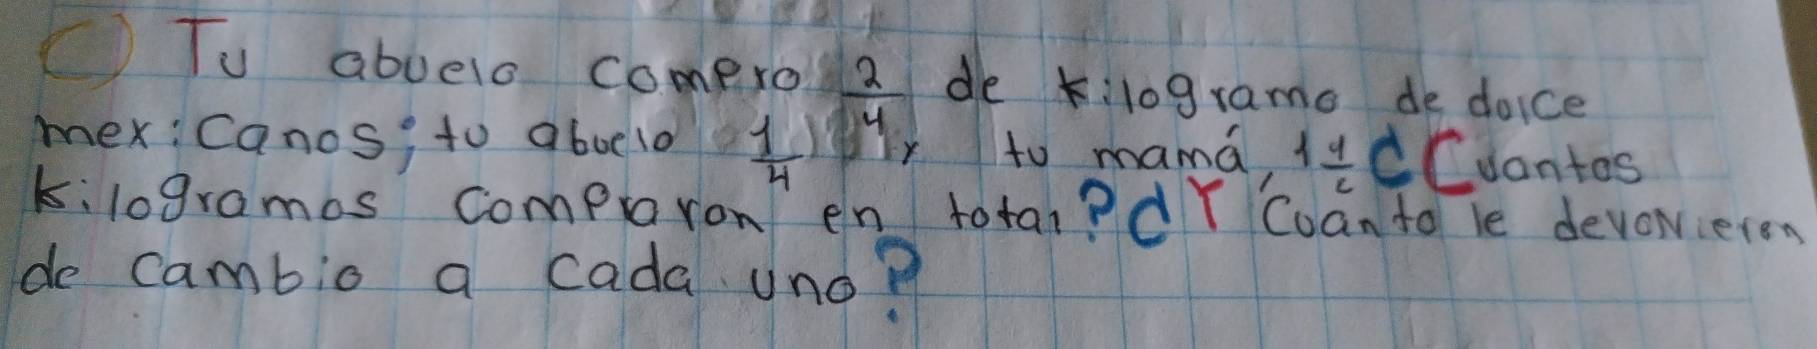 C) Tu abuelo compro 2/4 de kilogramo de dolce
mexicanos; tu abuelo 1/4 y tu mamá, 1 1/2 ¿Cuantos
kilogramos compraron en total? ¿Y Cuánto le devolvieron
de cambio a cada uno?